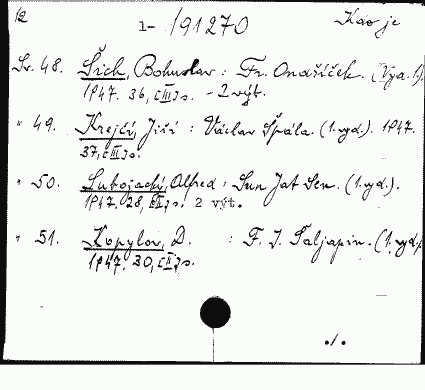 12 1- 191270 Kdo je
Sv. 48. Šich, Bohuslav : Fr. Ondříček. (Vyd. 1).
1947. 36, [III] s. - 2 výt.
" 49. Krejčí, Jiří : Václav Špála. (1. vyd.). 1947.
37, [III] s.
" 50. Lubojacký, Alfred : Sun Jat Sen. (1. vyd.).
1947. 28, s. 2 výt.
" 51. Kopylov, D. : F. I. Šaljapin. (1. vyd.
1947. 30, [II] s.
./.